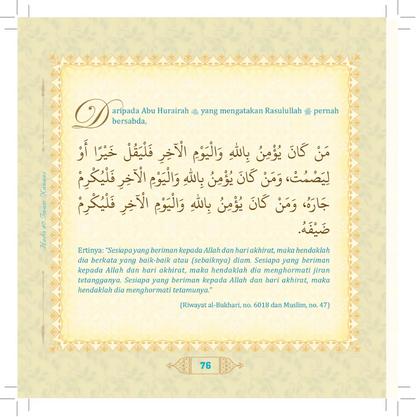 Daripada Abu Hurairah ؓ yang mengatakan Rasulullah ﷺ pernah
bersabda,
مَنْ كَانَ يُؤْمِنُ بِاللهِ وَالْيَوْمِ الْآخِرِ فَلْيَقُلْ خَيْرًا أَوْ
لِيَصْمُتْ، وَمَنْ كَانَ يُؤْمِنُ بِاللهِ وَالْيَوْمِ الْآخِرِ فَلْيُكْرِمْ
جَارَهُ، وَمَنْ كَانَ يُؤْمِنُ بِاللهِ وَالْيَوْمِ الْآخِرِ فَلْيُكْرِمْ
ضَيْفَهُ.
Ertinya: "Sesiapa yang beriman kepada Allah dan hari akhirat, maka hendaklah
dia berkata yang baik-baik atau (sebaiknya) diam. Sesiapa yang beriman
kepada Allah dan hari akhirat, maka hendaklah dia menghormati jiran
tetangganya. Sesiapa yang beriman kepada Allah dan hari akhirat, maka
hendaklah dia menghormati tetamunya."
(Riwayat al-Bukhari, no. 6018 dan Muslim, no. 47)
76